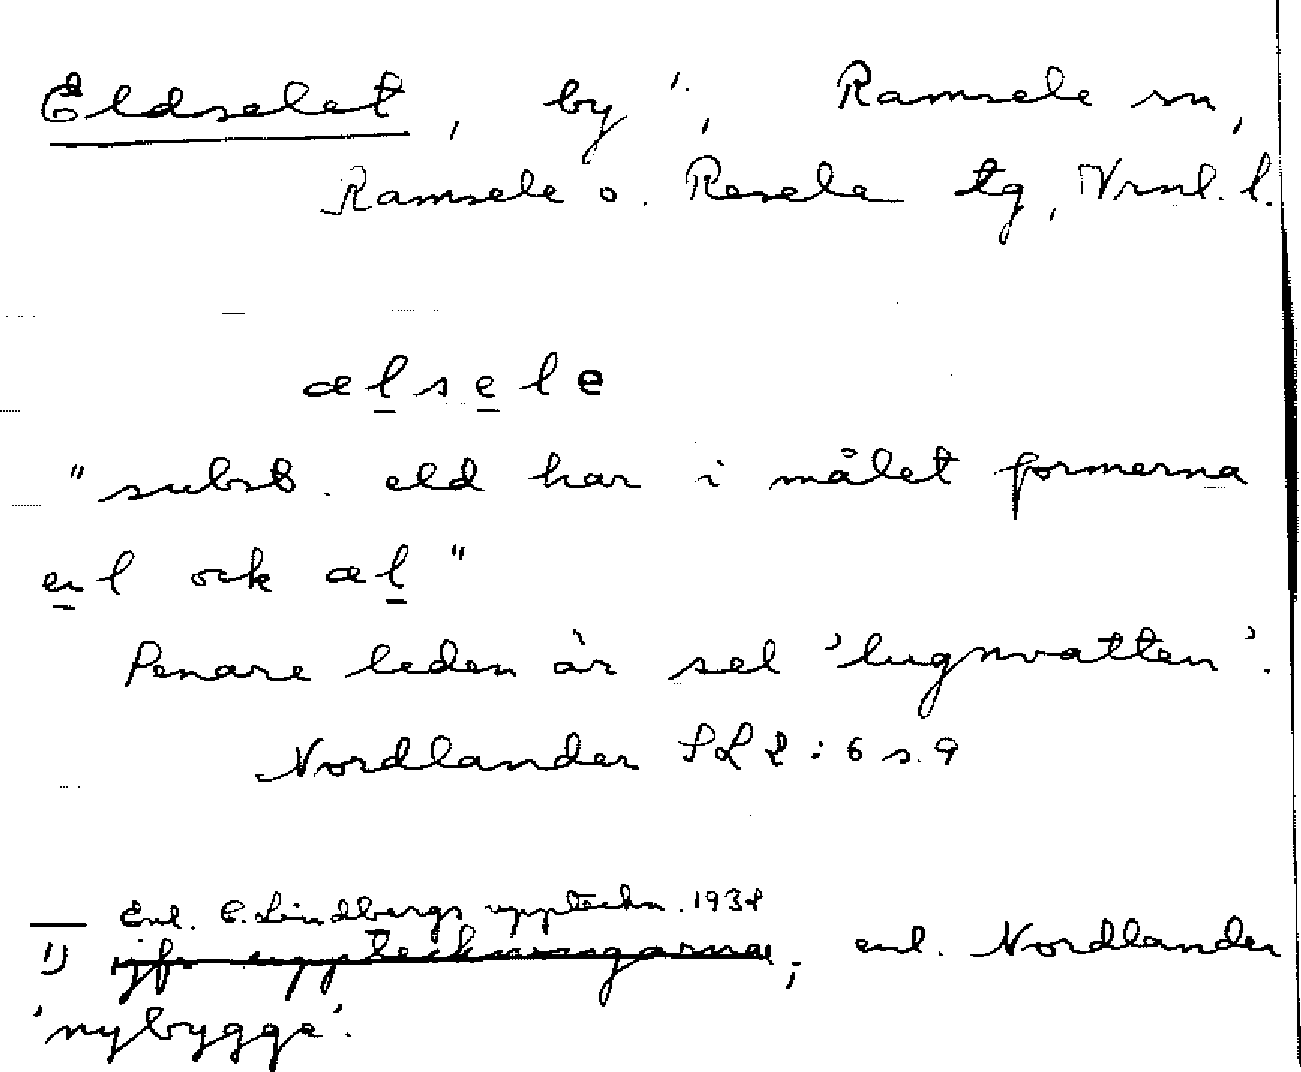 Eldselet, by ¹⁾, Ramsele sn,
Ramsele o. Resele tg, Vrnl. l.
ælsele
"subst. eld har i målet formerna
el ock æl"
Senare leden är sel 'lugnvatten'.
Nordlander SL 2:6 s. 9
Enl. C. Lindbergs uppteckn. 1934
1) jfr uppteckningarna; enl. Nordlander
'nybygge'.